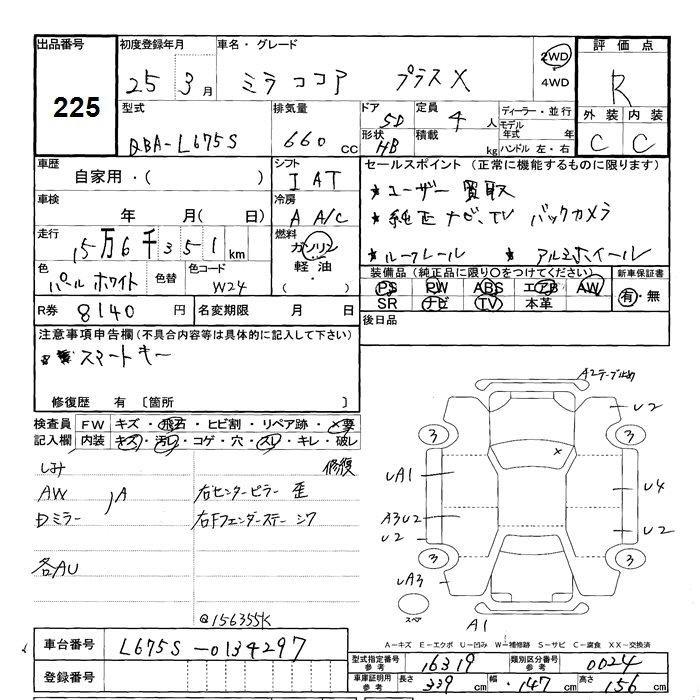 出品番号
225
初度登録年月
25 3月
車名・グレード
ミラ ココア プラスX
2WD
4WD
評価点
R
外装 内装
C C
型式
DBA-L675S
排気量
660 cc
ドア
5D
形状
HB
定員
4 人
積載 kg
ディーラー・並行
モデル年式 年
ハンドル 左・右
車歴
自家用・( )
シフト
I AT
セールスポイント (正常に機能するものに限ります)
★ユーザー買取
★純正ナビ、TV バックカメラ
★ルーフレール ★アルミホイール
車検
年 月( 日)
冷房
A A/C
走行
15万6千351km
燃料
ガソリン
・
軽油
・
( )
色
パールホワイト
色替
色コード
W24
装備品 (純正品に限り○をつけてください)
PS PW ABS エアB AW
SR ナビ TV 本革
新車保証書
有・無
R券 8140円
名変期限 月 日
後日品
注意事項申告欄 (不具合内容等は具体的に記入して下さい)
スマートキー
修復歴 有 〔箇所
検査員記入欄
FW キズ・飛石・ヒビ割・リペア跡・×要
内装 キズ・汚レ・コゲ・穴・スレ・キレ・破レ
しみ 修復
AW A
Dミラー
右センターピラー 歪
右Fフェンダーステー シワ
各AU
@156355K
A2テープ止め
U2
3 3
UA1
U4
A3U2
U2
U2
3 3
UA3
スペア
A1
A-キズ E-エクボ U-凹み W-補修跡 S-サビ C-腐食 XX-交換済
車台番号 L675S-0134297
登録番号
型式指定番号参考 16319
類別区分番号参考 0024
車庫証明用参考 長さ 339cm 幅 147cm 高さ 156cm